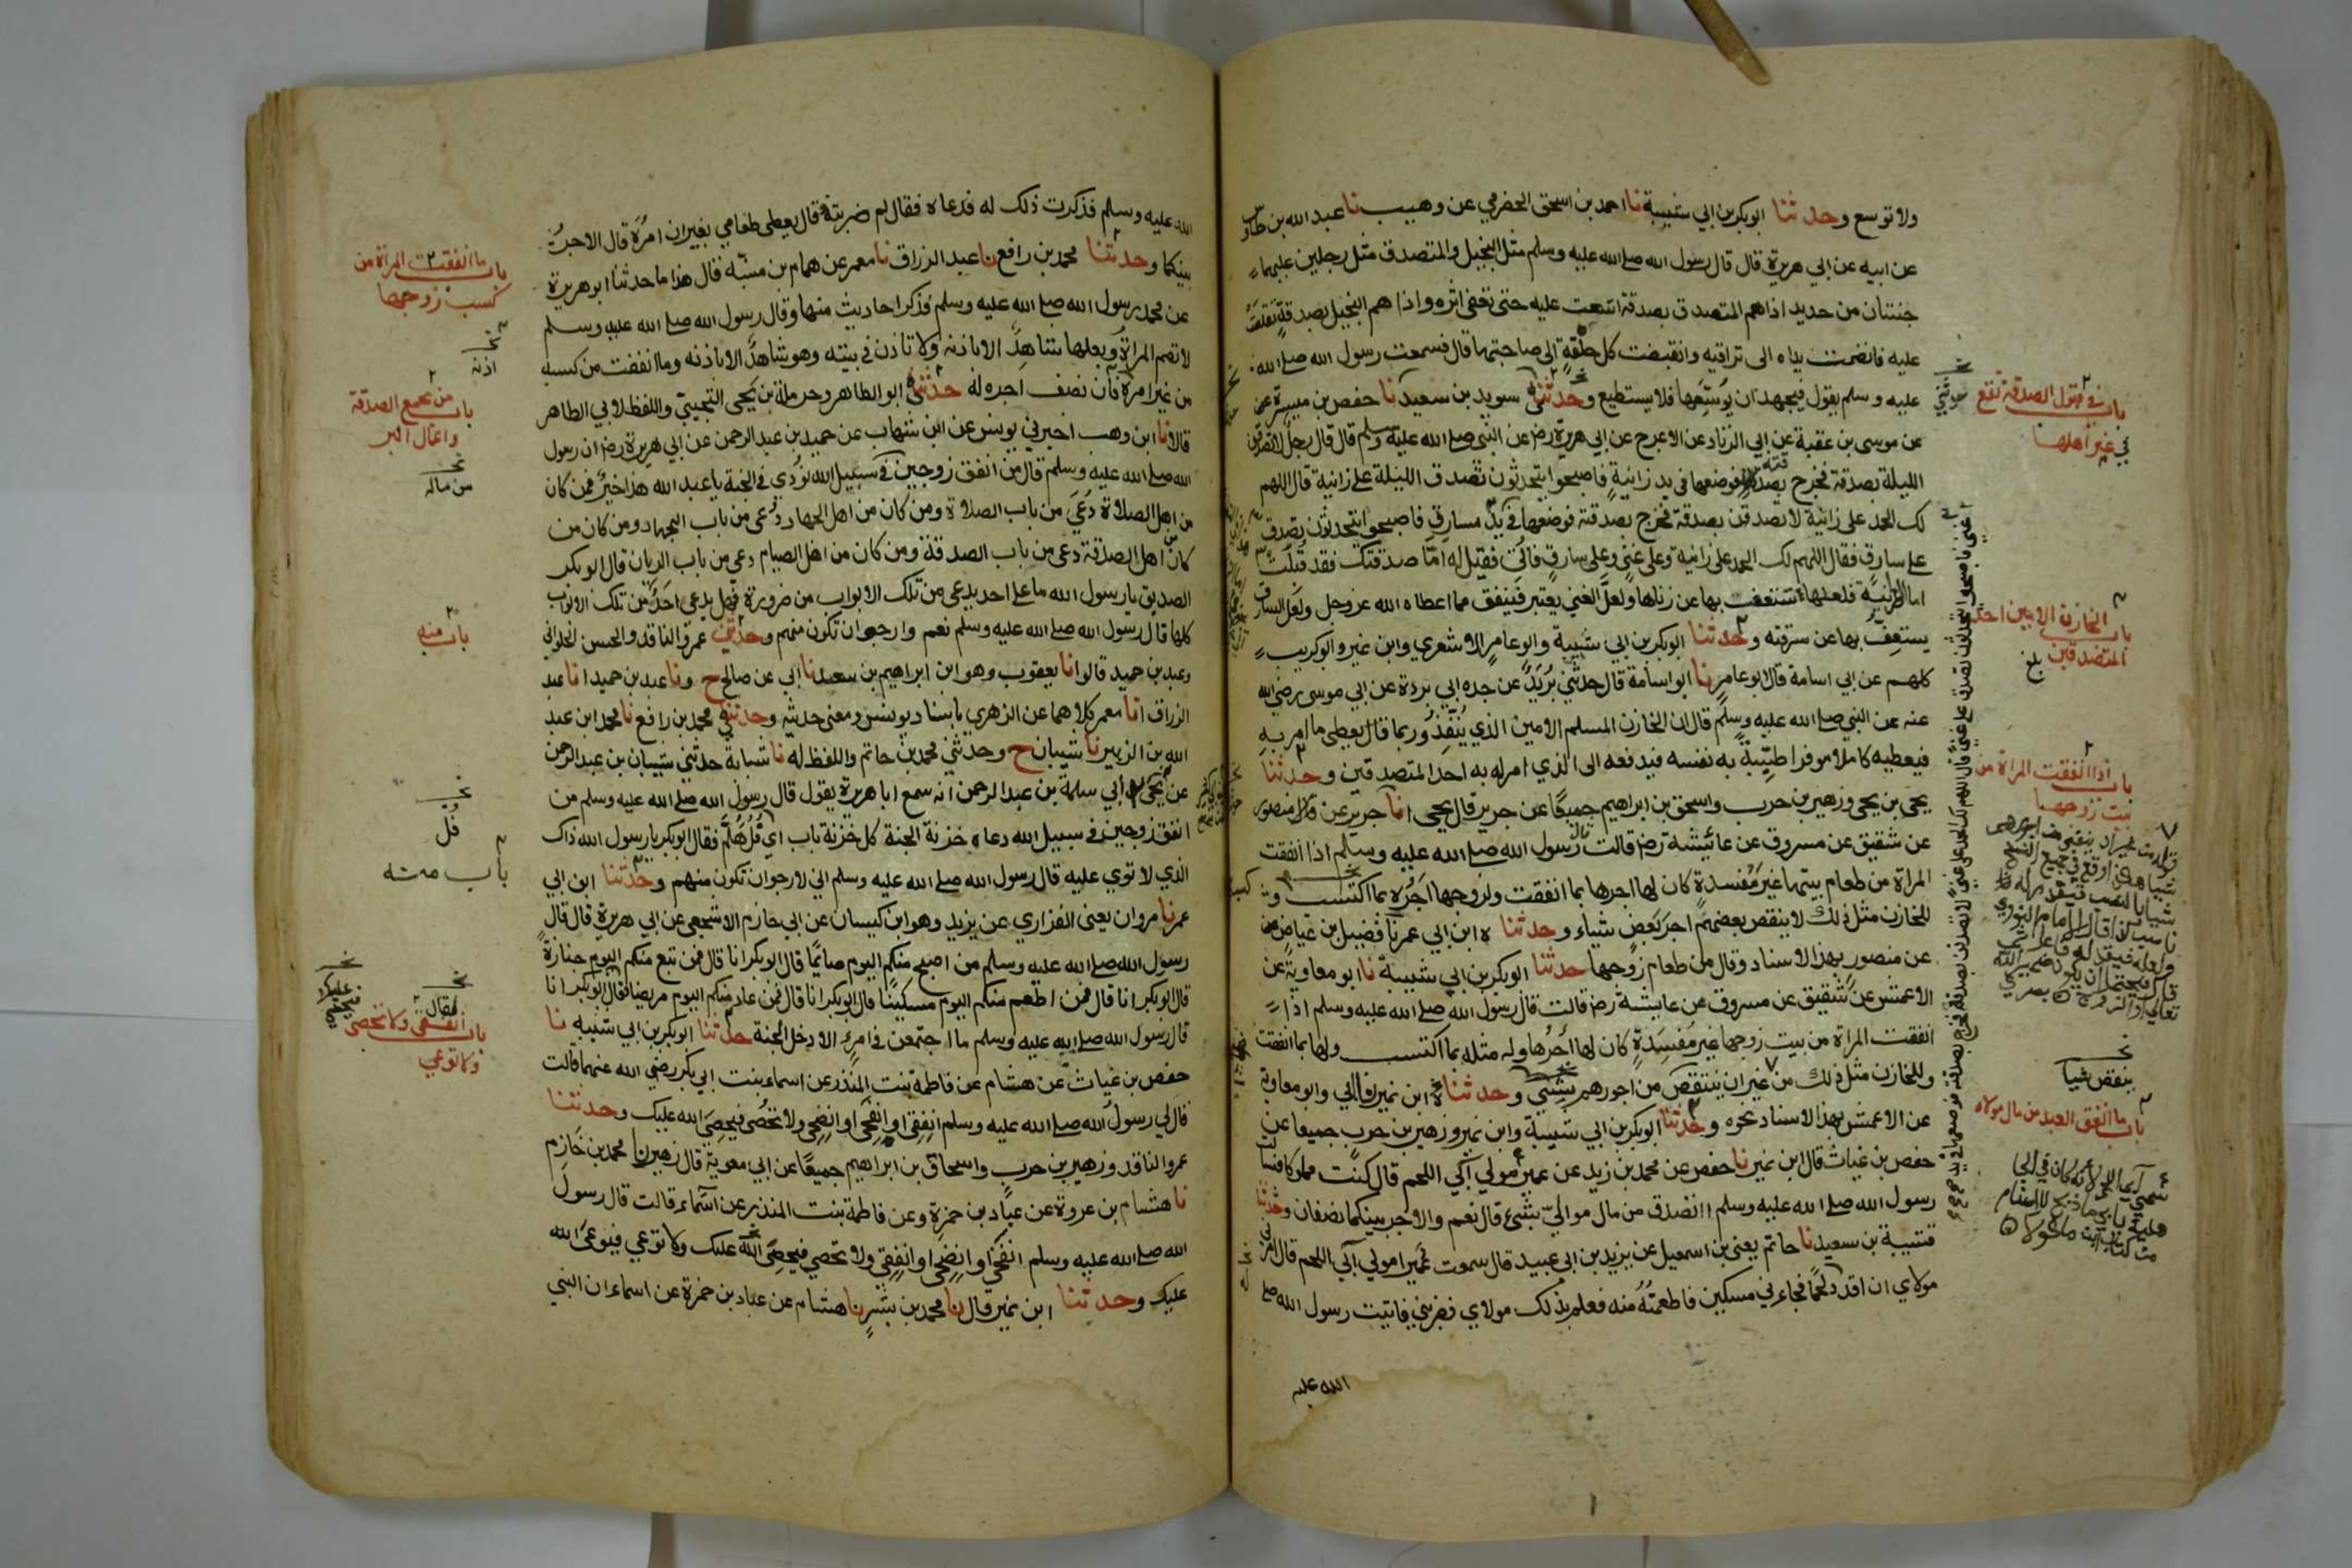 ولا توسع وحدثنا ابو بكر بن ابي شيبة نا احمد بن اسحق الحضرمي عن وهيب نا عبد الله بن طاوس
عن ابيه عن ابي هريرة قال قال رسول الله صلى الله عليه وسلم مثل البخيل والمتصدق مثل رجلين عليهما
جنتان من حديد اذا هم المتصدق بصدقة اتسعت عليه حتى تعفى اثره واذا هم البخيل بصدقة تقلصت
عليه فانضمت يداه الى تراقيه وانقبضت كل حلقة الى صاحبتها قال فسمعت رسول الله صلى الله
عليه وسلم يقول فيجهد ان يوسعها فلا يستطيع وحدثني سويد بن سعيد نا حفص بن ميسرة عن
عن موسى بن عقبة عن ابي الزناد عن الاعرج عن ابي هريرة رض عن النبي صلى الله عليه وسلم قال قال رجل لاتصدقن
الليلة بصدقة فخرج بصدقته فوضعها في يد زانية فاصبحوا يتحدثون تصدق الليلة على زانية قال اللهم
لك الحمد على زانية لاتصدقن بصدقة فخرج بصدقته فوضعها في يد سارق فاصبحوا يتحدثون تصدق
على سارق فقال اللهم لك الحمد على زانية وعلى غني وعلى سارق فاتي فقيل له اما صدقتك فقد قبلت
اما الزانية فلعلها تستعفف بها عن زناها ولعل الغني يعتبر فينفق مما اعطاه الله عز وجل ولعل السارق
يستعفف بها عن سرقته وحدثنا ابو بكر بن ابي شيبة وابو عامر الاشعري وابن نمير وابو كريب
كلهم عن ابي اسامة قال ابو عامر نا ابو اسامة قال حدثني بريد عن جده ابي بردة عن ابي موسى رضي الله
عنه عن النبي صلى الله عليه وسلم قال ان الخازن المسلم الامين الذي ينفذ وربما قال يعطي ما امر به
فيعطيه كاملا موفرا طيبة به نفسه فيدفعه الى الذي امر له به احد المتصدقين وحدثنا
يحيى بن يحيى وزهير بن حرب واسحق بن ابراهيم جميعا عن جرير قال يحيى انا جرير عن منصور
عن شقيق عن مسروق عن عائشة رض قالت قال رسول الله صلى الله عليه وسلم اذا انفقت
المراة من طعام بيتها غير مفسدة كان لها اجرها بما انفقت ولزوجها اجره بما اكتسب و
للخازن مثل ذلك لا ينقص بعضهم اجر بعض شياء وحدثناه ابن ابي عمر نا فضيل بن عياض
عن منصور بهذا الاسناد وقال من طعام زوجها حدثنا ابو بكر بن ابي شيبة نا ابو معاوية عن
الاعمش عن شقيق عن مسروق عن عايشة رض قالت قال رسول الله صلى الله عليه وسلم اذا
انفقت المراة من بيت زوجها غير مفسدة كان لها اجرها وله مثله بما اكتسب ولها بما انفقت
وللخازن مثل ذلك من غير ان ينتقص من اجورهم شيئ وحدثناه ابن نمير نا ابي وابو معاوية
عن الاعمش بهذا الاسناد نحوه وحدثنا ابو بكر بن ابي شيبة وابن نمير وزهير بن حرب جميعا عن
حفص بن غياث قال ابن نمير نا حفص عن محمد بن زيد عن عمير مولى آبي اللحم قال كنت مملوكا فسالت
رسول الله صلى الله عليه وسلم اتصدق من مال موالي بشئ قال نعم والاجر بينكما نصفان وحدثنا
قتيبة بن سعيد نا حاتم يعني بن اسمعيل عن يزيد بن ابي عبيد قال سمعت عميرا مولى آبي اللحم قال امرني
مولاي ان اقدد لحما فجاءني مسكين فاطعمته منه فعلم بذلك مولاي فضربني فاتيت رسول الله صلى
الله عليه
باب في قبول الصدقة تقع
في غير اهلها
باب الخازن الامين احد
المتصدقين بلغ
باب اذا انفقت المراة من
بيت زوجها
ينقص شيا
باب ما انفق العبد من مال مولاه
الله عليه وسلم فذكرت ذلك له فدعاه فقال لم ضربته قال يعطي طعامي بغير ان امره قال الاجر
بينكما وحدثنا محمد بن رافع نا عبد الرزاق نا معمر عن همام بن منبه قال هذا ما حدثنا ابو هريرة
عن محمد رسول الله صلى الله عليه وسلم فذكر احاديث منها وقال رسول الله صلى الله عليه وسلم
لا تصم المراة وبعلها شاهد الا باذنه ولا تاذن في بيته وهو شاهد الا باذنه وما انفقت من كسبه
من غير امره فان نصف اجره له حدثني ابو الطاهر وحرملة بن يحيى التجيبي واللفظ لابي الطاهر
قالا نا ابن وهب اخبرني يونس عن ابن شهاب عن حميد بن عبد الرحمن عن ابي هريرة رض ان رسول
الله صلى الله عليه وسلم قال من انفق زوجين في سبيل الله نودي في الجنة يا عبد الله هذا خير فمن كان
من اهل الصلاة دعي من باب الصلاة ومن كان من اهل الجهاد دعي من باب الجهاد ومن كان من
كان اهل الصدقة دعي من باب الصدقة ومن كان من اهل الصيام دعي من باب الريان قال ابو بكر
الصديق يا رسول الله ما على احد يدعى من تلك الابواب من ضرورة فهل يدعى احد من تلك الابواب
كلها قال رسول الله صلى الله عليه وسلم نعم وارجو ان تكون منهم وحدثني عمرو الناقد والحسن الحلواني
وعبد بن حميد قالوا نا يعقوب وهو ابن ابراهيم بن سعد نا ابي عن صالح ح ونا عبد بن حميد انا عبد
الرزاق انا معمر كلاهما عن الزهري باسناد يونس ومعنى حديثه وحدثني محمد بن رافع نا محمد ابن عبد
الله بن الزبير نا شيبان ح وحدثني محمد بن حاتم واللفظ له نا شبابة حدثني شيبان بن عبد الرحمن
عن يحيى عن ابي سلمة بن عبد الرحمن انه سمع ابا هريرة يقول قال رسول الله صلى الله عليه وسلم من
انفق زوجين في سبيل الله دعاه خزنة الجنة كل خزنة باب اي فل هلم فقال ابو بكر يا رسول الله ذاك
الذي لا توى عليه قال رسول الله صلى الله عليه وسلم اني لارجو ان تكون منهم وحدثنا ابن ابي
عمر نا مروان يعني الفزاري عن يزيد وهو ابن كيسان عن ابي حازم الاشجعي عن ابي هريرة قال قال
رسول الله صلى الله عليه وسلم من اصبح منكم اليوم صائما قال ابو بكر انا قال فمن تبع منكم اليوم جنازة
قال ابو بكر انا قال فمن اطعم منكم اليوم مسكينا قال ابو بكر انا قال فمن عاد منكم اليوم مريضا فقال ابو بكر انا
قال رسول الله صلى الله عليه وسلم ما اجتمعن في امرء الا دخل الجنة حدثنا ابو بكر بن ابي شيبة نا
حفص بن غياث عن هشام عن فاطمة بنت المنذر عن اسماء بنت ابي بكر رضي الله عنهما قالت
قال لي رسول الله صلى الله عليه وسلم انفقي او انفحي او انضحي ولا تحصي فيحصي الله عليك وحدثنا
عمرو الناقد وزهير بن حرب واسحاق بن ابراهيم جميعا عن ابي معوية قال زهير نا محمد بن خازم
نا هشام بن عروة عن عباد بن حمزة وعن فاطمة بنت المنذر عن اسماء قالت قال رسول
الله صلى الله عليه وسلم انفحي او انضحي او انفقي ولا تحصي فيحصي الله عليك ولا توعي فيوعي الله
عليك وحدثنا ابن نمير قال نا محمد بن بشر نا هشام عن عباد بن حمزة عن اسماء ان النبي
باب ما انفقت المراة من
كسب زوجها
اذنه
باب من يجمع الصدقة
واعمال البر
من ماله
باب منه
فل
باب منه
فقال
باب انفقي ولا تحصي
ولا توعي